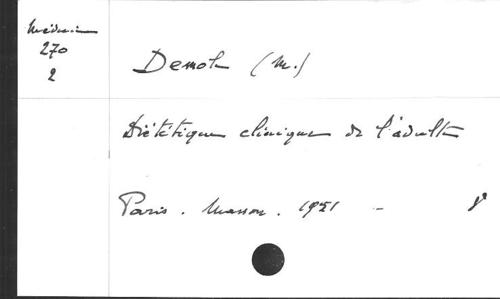 Médecin
270
2
Demole (M.)
Diététique clinique de l'adulte
Paris. Masson. 1951 - 8°